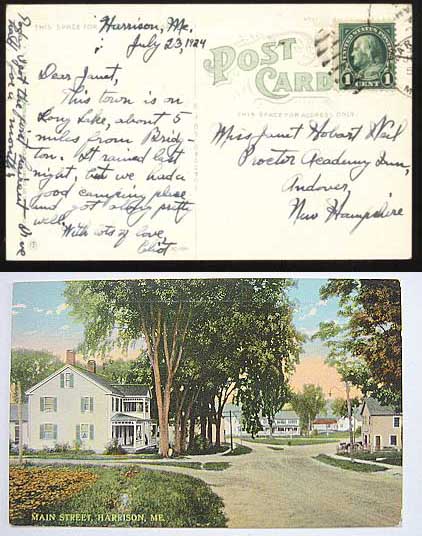 Harrison, Me.
July 23, 1924
Dear Janet,
This town is on
Long Lake, about 5
miles from Bridg-
ton. It rained last
night, but we had a
good camping place
and got along pretty
well.
With lots of love,
THIS SPACE FOR
POST
CARD
THIS SPACE FOR ADDRESS ONLY
1 CENT 1
Miss Janet Hobart
Proctor Academy Inn,
Andover,
New Hampshire
MAIN STREET, HARRISON, ME.